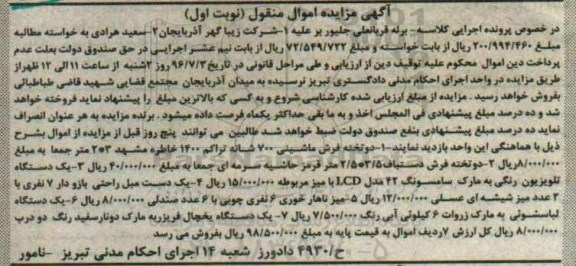 آگهی مزایده اموال منقول (نوبت اول)
در خصوص پرونده اجرایی کلاسه_ برله قربانعلی جلیوز بر علیه ۱-شرکت زیبا گهر آذربایجان۲-سعید هرادی به خواسته مطالبه
مبلغ ۲۰۰/۹۹۴/۴۶۰ ریال از بابت خواسته و مبلغ ۷۲/۵۴۹/۷۲۲ ریال از بابت نیم عشر اجرایی در حق صندوق دولت بعلت عدم
پرداخت دین اموال محکوم علیه توقیف دین از ارزیابی و طی مراحل قانونی در تاریخ۹۶/۷/۳ روز ۲شنبه از ساعت ۱۱ الی ۱۲ ظهراز
طریق مزایده در واحد اجرای احکام مدنی دادگستری تبریز نرسیده به میدان آذربایجان مجتمع قضایی شهید قاضی طباطبائی
بفروش خواهد رسید . مزایده از مبلغ ارزیابی شده کارشناسی شروع و به کسی که بالاترین مبلغ را پیشنهاد نماید فروخته خواهد
شد و ده درصد مبلغ پیشنهادی فی المجلس اخذ و به ما بقی حداکثر یکماه فرصت داده میشود . برنده مزایده به هر عنوان انصراف
نماید ده درصد مبلغ پیشنهادی بنفع صندوق دولت ضبط خواهد شد طالبین می توانند پنج روز قبل از مزایده از اموال بشرح
ذیل با هماهنگی این واحد بازدید نمایند۱-دوتخته فرش ماشینی ۷۰۰ شانه تراکم ۱۴۰۰ خاطره مشهد ۳۰۲ متر جمعا به مبلغ
۸/۰۰۰/۰۰۰ریال ۲-دوتخته فرش دستباف۳/۵×۲/۵ متر قرمز حاشیه سرمه ای جمعا به مبلغ ۴۰/۰۰۰/۰۰۰ ریال ۳-یک دستگاه
تلویزیون رنگی به مارک سامسونگ ۴۲ مدل LCD با میز مربوطه ۱۵/۰۰۰/۰۰۰ ریال ۴-یک دست مبل راحتی بازو دار ۷ نفری با
۳ عدد میز شیشه ای عسلی ۱۲/۰۰۰/۰۰۰ ریال ۵-میز ناهار خوری ۶ نفری چوبی با ۶ عدد صندلی ۸/۰۰۰/۰۰۰ ریال ۶-یک دستگاه
لباسشوئی به مارک زروات ۶ کیلوئی آبی رنگ ۷/۵۰۰/۰۰۰ ریال ۷- یک دستگاه یخچال فریزربه مارک دونارسفید رنگ دو درب
۸/۰۰۰/۰۰۰ ریال کل ارزش ۷ردیف اموال به قیمت پایه به مبلغ ۹۸/۵۰۰/۰۰۰ ریال بفروش می رسد
ح/۴۹۳۰ دادورز شعبه ۱۴ اجرای احکام مدنی تبریز -نامور